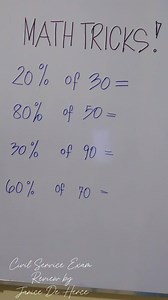 MATH TRICKS!
20% of 30=
80% of 50=
30% of 90=
60% of 70 =
Civil Service Exam
Review by
Janice De Herce